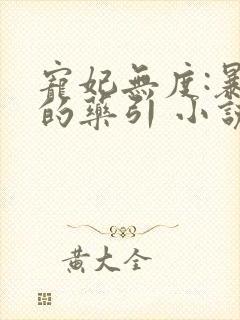 寵妃無度:暴
的藥引 小說
黃大全